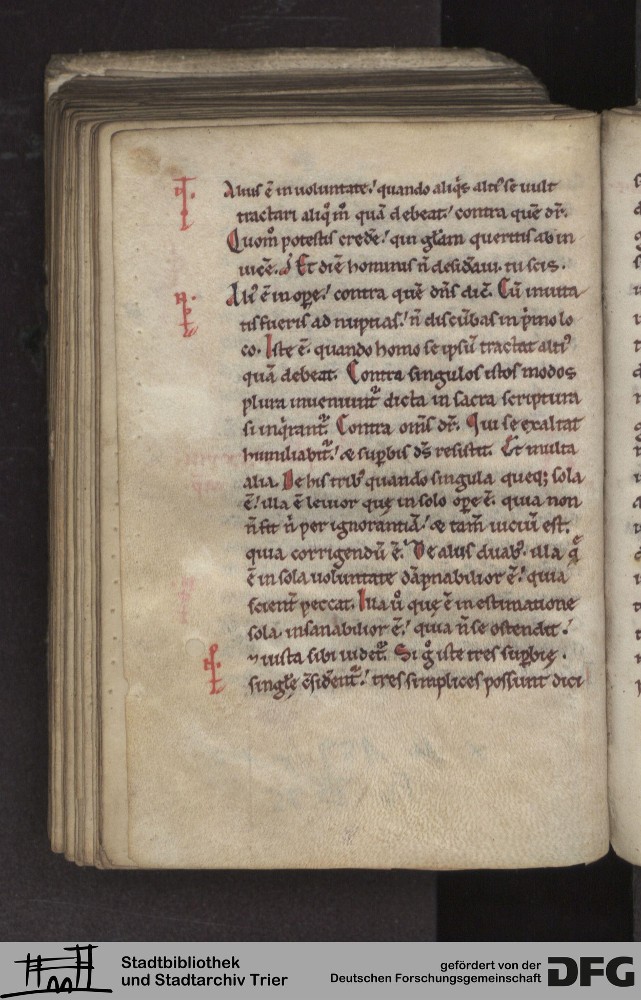 Alius ē in uoluntate. quando aliq̄s alti᷒ se uult
tractari aliq̊ m̊ quā debeat. contra quē dr̄.
Quom̊ potestis credē. qui gl̄am queritis ab in
uicē. Et diē hominis n̄ desidāui. tu scis.
Ali᷒ ē in oꝑe. contra quē dn̄s dic̄. Cū inuita
tis fueris ad nuptias. n̄ discūbas in p̄mo lo
co. Iste ē. quando homo se ipsū tractat alti᷒
quā debeat. Contra singulos istos modos
plura inueniunt᷑ dicta in sacra scriptura
si inq̄rant᷑. Contra om̄s dr̄. Qui se exaltat
humiliabit᷑. & suꝑbis ds̄ resistit. Et multa
alia. De his trib᷒ quando singula queq; sola
ē. illa ē leuior quę in solo oꝑe ē. quia non
n̄ fit n̄ per ignorantiā. & tam̄ uiciū est.
quia corrigendū ē. De aliis duab᷒. illa q̄
ē in sola uoluntate dāpnabilior ē. quia
scient̄ peccat. Illa ů quę ē in estimatione
sola. insanabilior ē. quia n̄ se ostendit.
⁊ iusta sibi uidet᷑. Si g̊ iste tres suꝑbię.
singlę c̄siđent᷑. tres simplices possunt dici
Stadtbibliothek
und Stadtarchiv Trier
gefördert von der
Deutschen Forschungsgemeinschaft
DFG